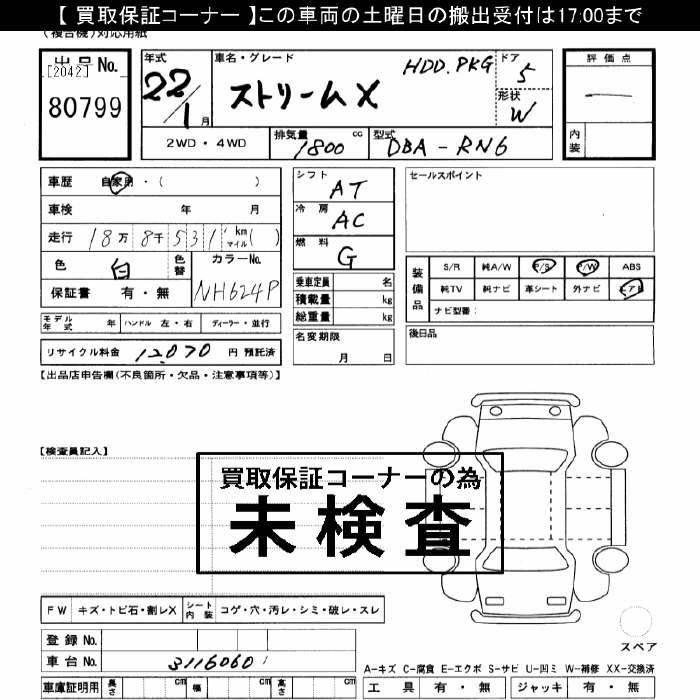 【 買取保証コーナー 】この車両の土曜日の搬出受付は17:00まで
(複合機)対応用紙
出品 No. [2042] 80799
年式 22/1月 車名・グレード ストリーム X HDD.PKG ドア 5 形状 W
評価点 — 内装
2WD・4WD 排気量 1800 cc 型式 DBA-RN6
車歴 自家用・( )
車検 年 月
走行 18万 8千 531 km マイル( )
色 白 色替 カラーNo. NH624P
保証書 有・無
シフト AT
冷房 AC
燃料 G
乗車定員 名
積載量 kg
総重量 kg
セールスポイント
装備品 S/R 純A/W P/S P/W ABS
純TV 純ナビ 革シート 外ナビ エアB
ナビ型番:
モデル年式 年 ハンドル 左・右 ディーラー・並行
リサイクル料金 12,070 円 預託済
名変期限 月 日
後日品
【出品店申告欄(不良箇所・欠品・注意事項等)】
【検査員記入】
買取保証コーナーの為
未検査
FW キズ・トビ石・割レX シート内装 コゲ・穴・汚レ・シミ・破レ・スレ
登録 No.
車台 No. 3116060
スペア
車庫証明用 長さ cm 幅 cm 高さ cm
A-キズ C-腐食 E-エクボ S-サビ U-凹ミ W-補修 XX-交換済
工具 有・無 ジャッキ 有・無